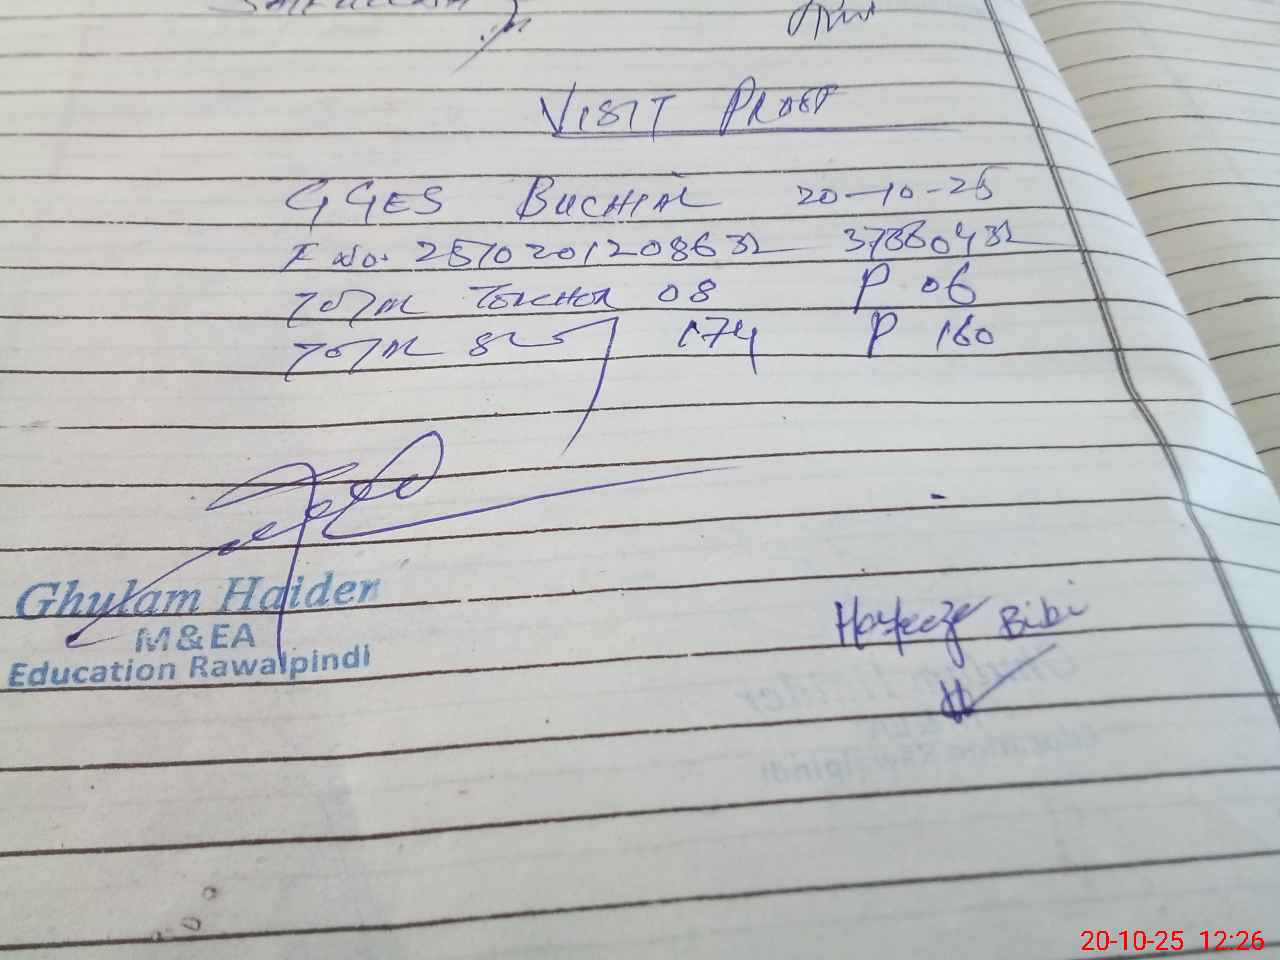 VISIT PROOF
GGES BUCHIAL 20-10-25
F No. 2510201208632 37330432
TOTAL TEACHER 08 P 06
TOTAL STU 174 P 160
Ghulam Haider
M&EA
Education Rawalpindi
Hafeeza Bibi
20-10-25 12:26